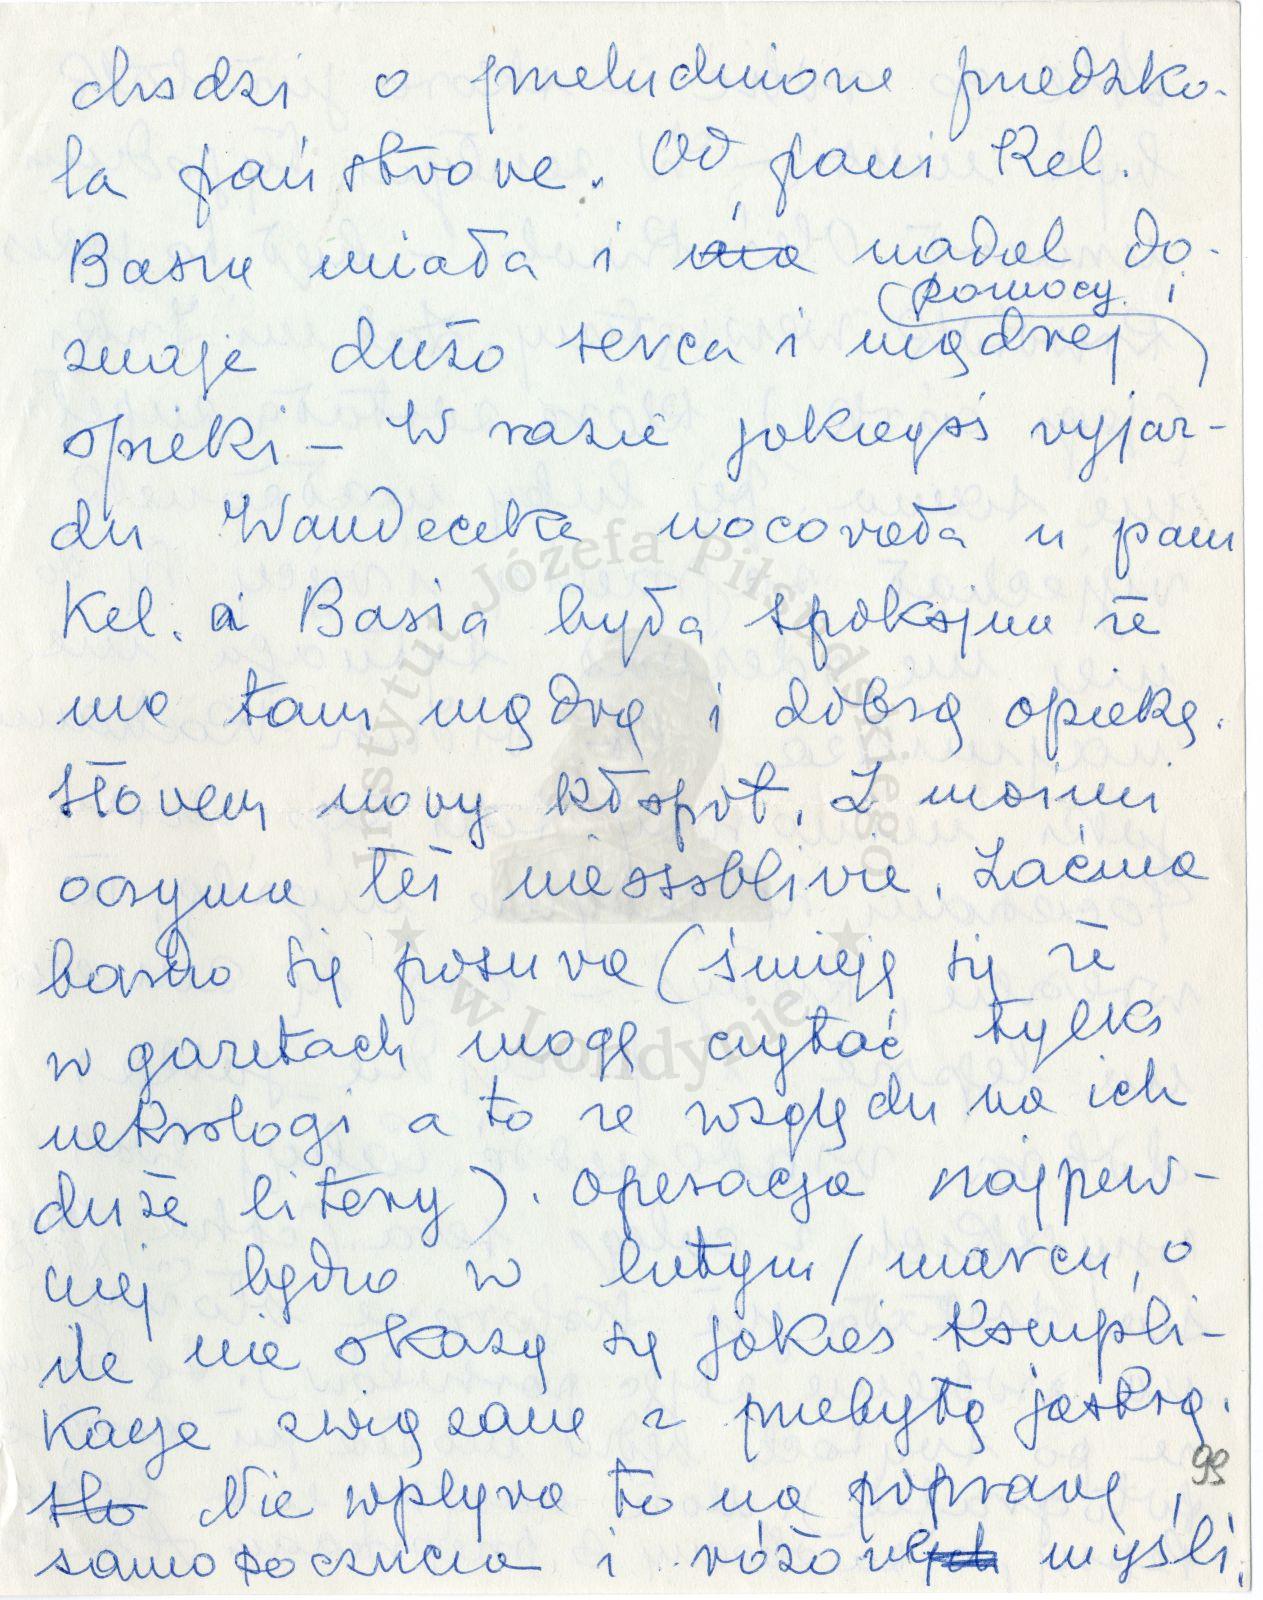 chodzi o przeludnione przedszko-
la państwowe. Od pani Kel.
Basia miała i nadal do-
pomocy i
znaje dużo serca i mądrej
opieki – W razie jakiegoś wyjaz-
du Wandeczka nocowała u pani
Kel. a Basia była spokojna że
ma tam mądrą i dobrą opiekę.
Słowem nowy kłopot. Z moimi
oczyma też nieosobliwie. Zaćma
bardzo się posuwa (śmieję się że
w gazetach mogę czytać tylko
nekrologi a to ze względu na ich
duże litery). Operacja najpew-
niej będzie w lutym/marcu, o
ile nie okażą się jakieś kompli-
kacje związane z przebytą jaskrą.
Nie wpływa to na poprawę
samopoczucia i różowe myśli.
99
Instytut Józefa Piłsudskiego
w Londynie